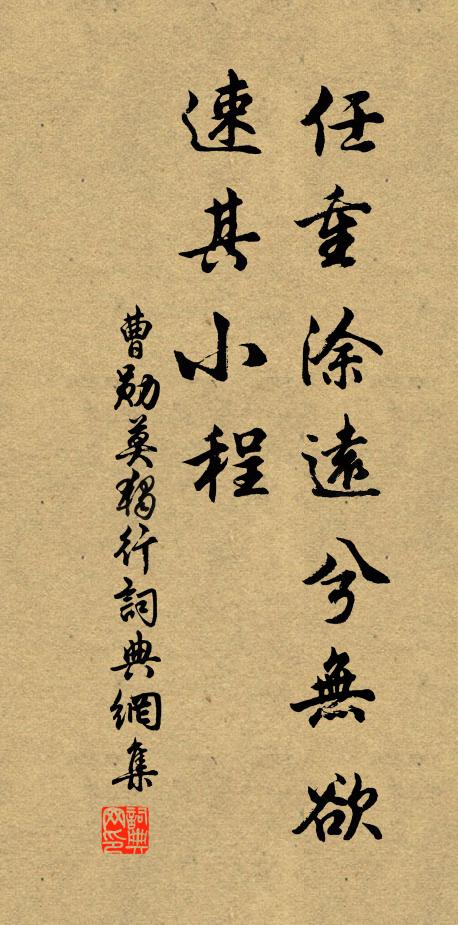 任重涂遠兮無欲
速其小程
曹勛莫獨行詞典網集
詞典網印